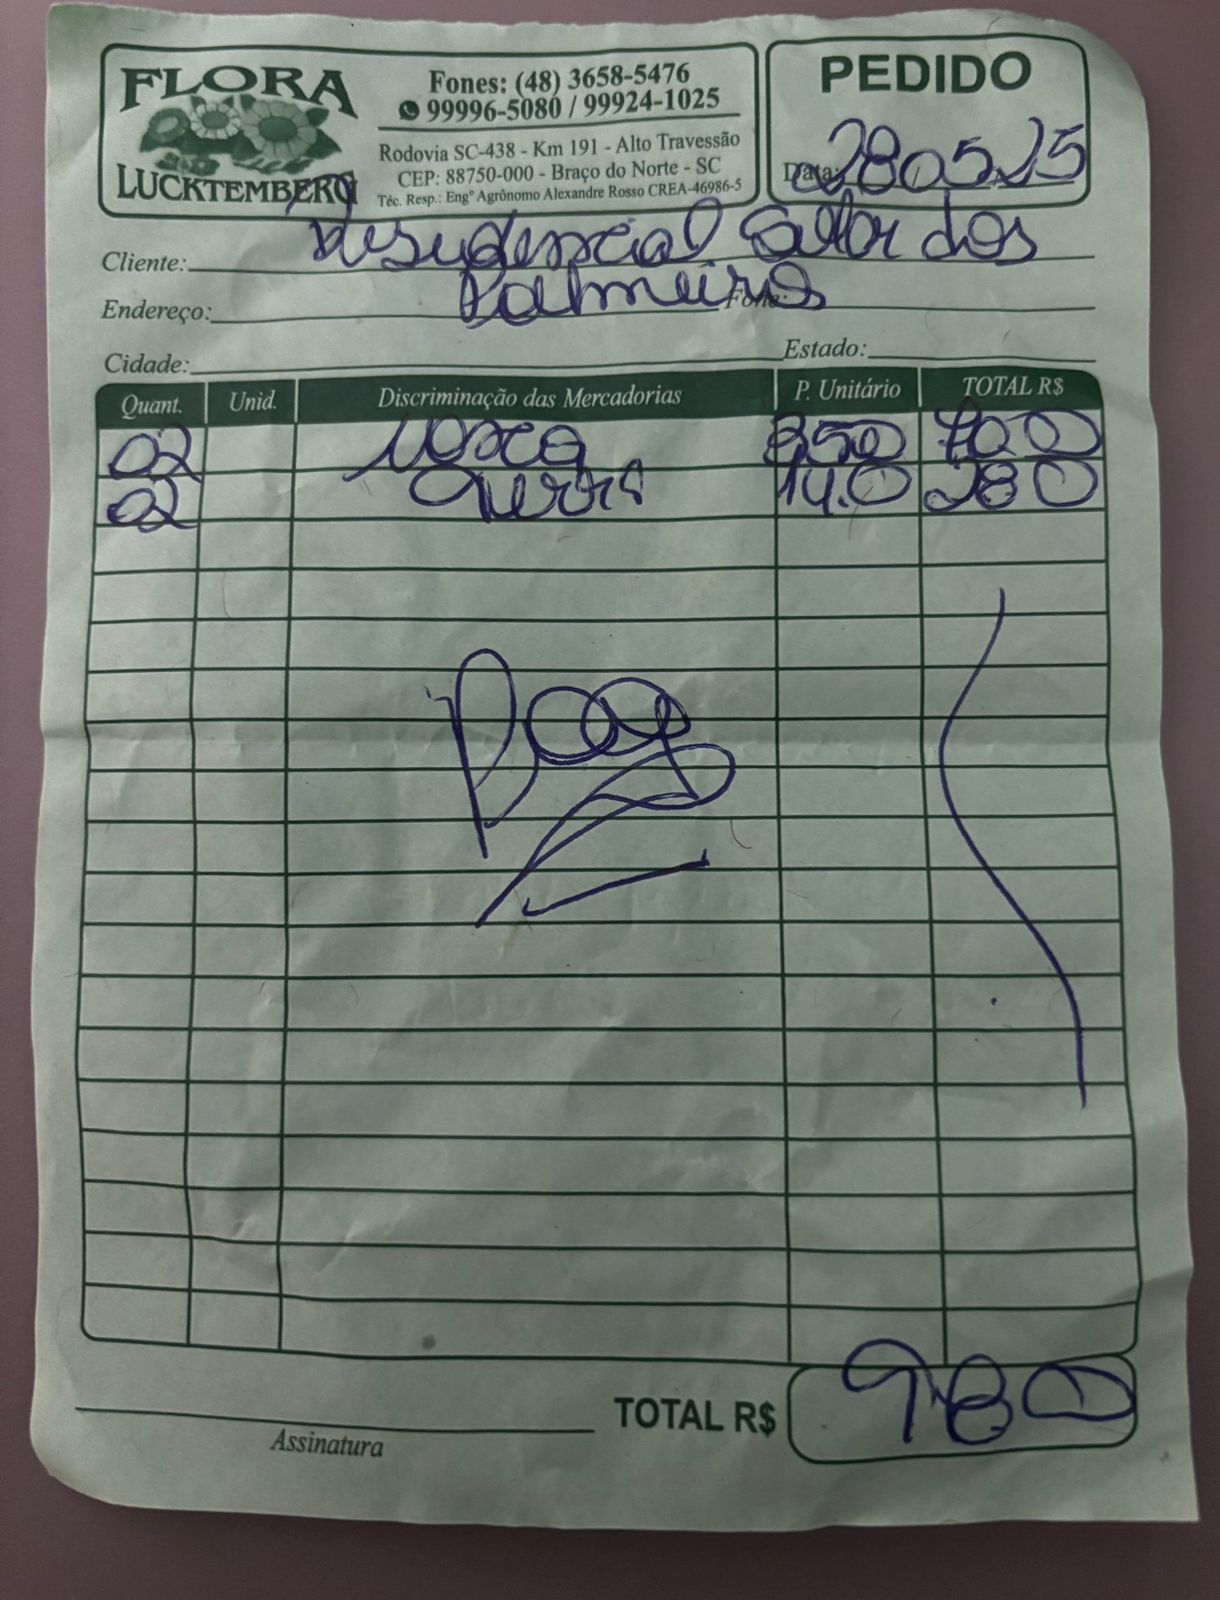 FLORA
LUCKTEMBERG
Fones: (48) 3658-5476
99996-5080 / 99924-1025
Rodovia SC-438 - Km 191 - Alto Travessão
CEP: 88750-000 - Braço do Norte - SC
Téc. Resp.: Engº Agrônomo Alexandre Rosso CREA-46986-5
PEDIDO
Data: 280525
Cliente: Residencial dos
Endereço: Palmeiras Fone:
Cidade: Estado:
Quant. Unid. Discriminação das Mercadorias P. Unitário TOTAL R$
02 3500 700
02 14.0 280
TOTAL R$ 980
Assinatura